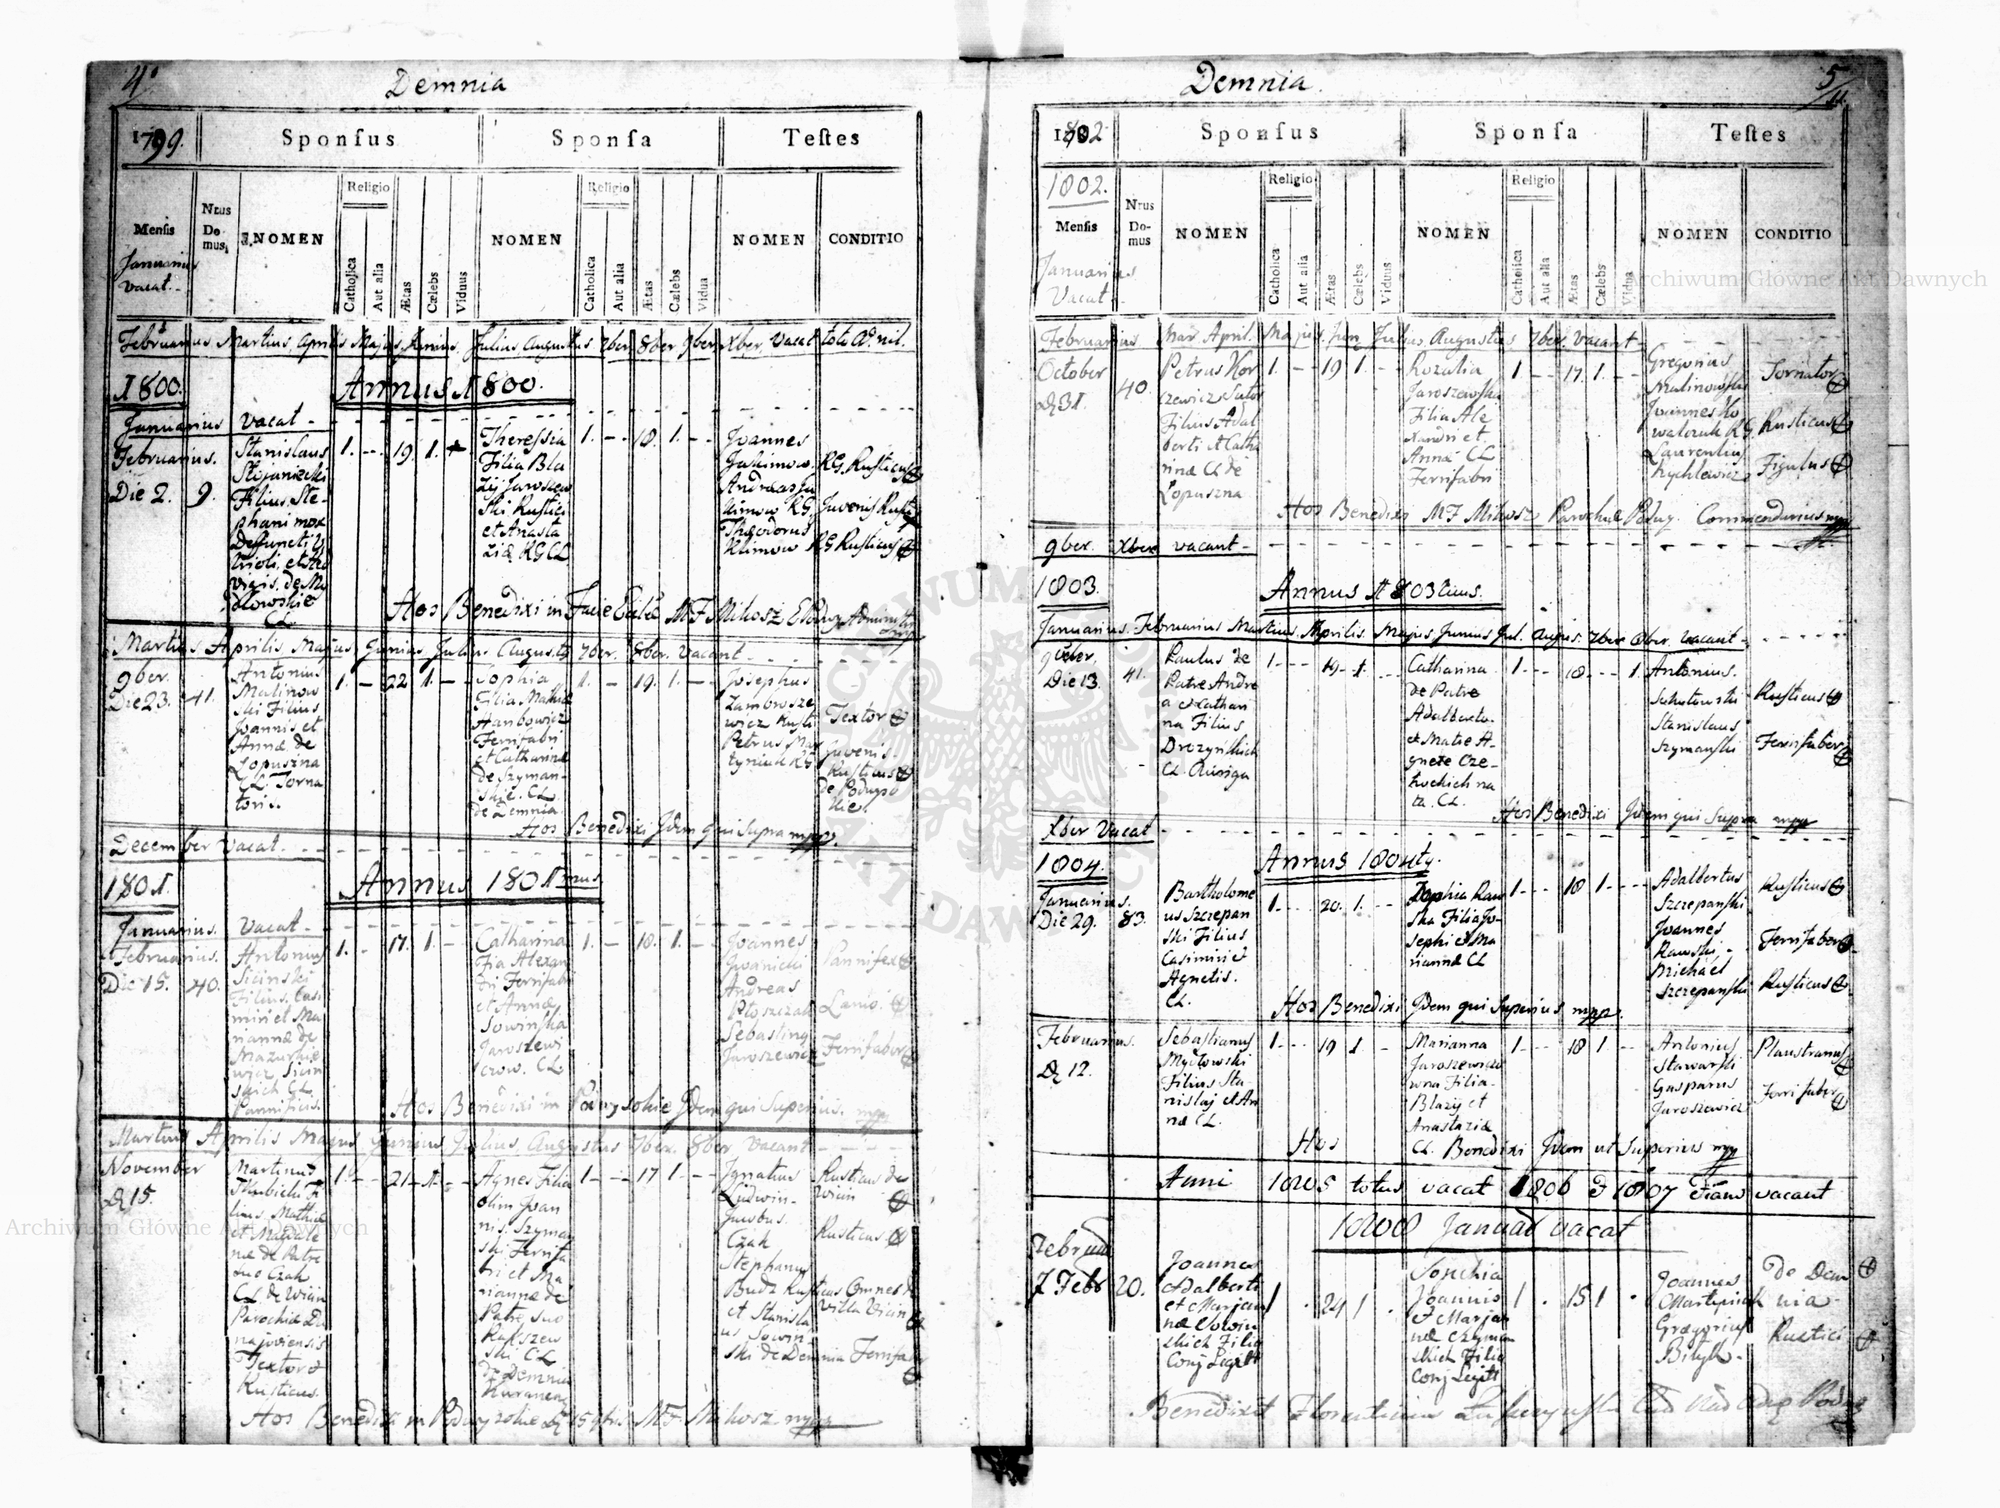 4.
Demnia
1799.
Sponsus
Sponsa
Testes
Mensis
Nrus Domus
NOMEN
Religio
Catholica
Aut alia
Ætas
Cælebs
Viduus
NOMEN
Religio
Catholica
Aut alia
Ætas
Cælebs
Vidua
NOMEN
CONDITIO
Januarius
vacat.
Februarius, Martius, Aprilis Majus, Junius, Julius, Augustus 7ber, 8ber 9ber, Xber, Vacat toto Ao nil.
1800.
Annus 1800.
Januarius vacat
Februarius.
Die 2.
9.
Stanislaus
Stojaniecki
Filius Ste-
phani mox
Defuncti
CL
1. - 19. 1.
Theressia
Filia Bla
zij Jaroszew
ski Rustici
et Anasta
ziæ RG CL
1. - 18. 1. -
Joannes
Jakimow
Andreas Ja
kimow RG
Theodorus
Klimow
RG. Rusticus
Juvenis Rusti
RG Rusticus
Hos Benedixi in Facie Ecclæ MF Mikosz
Martius Aprilis, Majus, Junius, Julius Augusts 7ber. 8ber. vacant
9ber.
Die 23.
41.
Antonius
Malinow
ski Filius
Joannis et
Annæ de
Lopuszna
CL. Torna
toris.
1. - 22 1. -
Sophia
Filia Mathiæ
Hanbowicz
Ferrifabri
et Catharinæ
de Szyman-
skie. CL.
de Demnia
1. - 19. 1. -
Josephus
Zambrosze
wicz Rusti
Petrus Mar
tyniuk RG
Textor
juvenis
Rusticus
Hos Benedixi Idem qui supra mpp.
December vacat.
1801.
Annus 1801mus
Januarius. vacat
Februarius.
Die 15.
40.
Antonius
Sicinski
Filius Casi
miri et Ma
riannæ de
Mazurkie
wicz Sicin
skich CL
Pannificis.
1. - 17. 1. -
Catharina
Fia Alexan
dri Ferrifabri
et Annæ
Sowinska
Jaroszewi
czow. CL
1. - 18. 1. -
Joannes
Iwanicki
Andreas
Ptoszczak
Sebastianus
Jaroszewicz
Pannifex
Lanio.
Ferrifaber
Hos Benedixi in Podwysokie Idem qui Superius. mpp
Martius Aprilis Majus Junius Julius, Augustus 7ber. 8ber vacant
November
D 15.
Martinus
Skubicki Fi
lius Mathiæ
et Magdale
næ de Patre
suo Czak
CL de Wicin
Parochiæ Du
najoviensis
Textor et
Rusticus.
1. - 21 - 1. -
Agnes Filia
olim Joan
nis Szyman
ski Ferrifa
bri et Ma
riannæ de
Patre suo
CL
de Demnia
1 - - 17 1. -
Ignatius
Ludwin
Jacobus
Czak
Stephanus
Budz
et Stanisla
us Sowin-
ski de Demnia
Rusticus de
Wicin
Rusticus
Rusticus Omnes de
villa Wicin
Ferrifaber
Hos Benedixi in Podwysokie D 15 9bris. MF. Mikosz mpp
5
Demnia.
1802
Sponsus
Sponsa
Testes
1802.
Mensis
Nrus Domus
NOMEN
Religio
Catholica
Aut alia
Ætas
Cælebs
Viduus
NOMEN
Religio
Catholica
Aut alia
Ætas
Cælebs
Vidua
NOMEN
CONDITIO
Januarius
Vacat
Februarius Mar. April. Majus. Jun Julius, Augustus 7ber. vacant
October
D 31.
40.
Petrus Kor
czewicz Sutor
Filius Adal
berti et Catha
rinæ CL de
Lopuszna
1. - - 19 1. -
Rozalia
Jaroszewska
Filia Ale
xandri et
Annæ CL
Ferrifabri
1. - - 17. 1. -
Gregorius
Malinowski
Joannes Ko
walczuk RG
Laurentius
Rychlewicz
Tornator
Rusticus
Figulus
Hos Benedixi MF Mikosz Parochiæ Podwy. Commendarius mpp
9ber. Xber vacant
1803.
Annus 1803tius.
Januarius. Februarius Martius. Aprilis. Majus, Junius Jul. Augus. 7ber 8ber. vacant
9ber.
Die 13.
41.
Paulus de
Patre Andre
a et Kathari
na Filius
Drozynskich
CL. Auriga
1 - - 19 - 1. -
Catharina
de Patre
Adalberto
et Matre A-
gnete Cze-
chockich na
ta. CL.
1. - - 18 - - 1.
Antonius
Sokolowski
Stanislaus
Szymanski
Rusticus
Ferrifaber
Hos Benedixi Idem qui Supra mpp
Xber Vacat
1804.
Annus 1804ty.
Januarius.
Die 29.
83.
Bartholome
us Szczepan
ski Filius
Casimiri et
Agnetis.
CL.
1. - 20. 1. -
Sophia Raw
ska Filia Jo-
sephi et Ma
riannæ CL
1 - - 18 1. -
Adalbertus
Szczepanski
Joannes
Rawski
Michael
Szczepanski
Rusticus
Ferrifaber
Rusticus
Hos Benedixi Idem qui Superius mpp
Februarius.
D 12.
Sebastianus
Mydlowski
Filius Sta-
nislaj et An
næ CL.
1 - - 19 1. -
Marianna
Jaroszewiczo
wna Filia
Blazij et
Anastaziæ
CL.
1 - - 18 1 -
Antonius
Stawarski
Gasparus
Jaroszewicz
Plaustrarius
Ferrifaber
Hos Benedixi Idem ut Superius mpp
Anni 1805 totus vacat 1806 & 1807 vacant
1808 Januar vacat
Februar
7 Febr
20.
Joannes
Adalberti
et Marjan
næ Sowin
skich Filius
Conj Legitt
1 . 24 1 .
Sophia
Joannis
& Marjan
næ Szyman
skich Filia
Conj Legitt
1 . 15 1 .
Joannes
Martyniak
Gregorius
Bilyk
De Dem
nia
Rustici
Benedixit Florentinus
Archiwum Główne Akt Dawnych
Archiwum Główne Akt Dawnych
ARCHIWUM GŁÓWNE AKT DAWNYCH